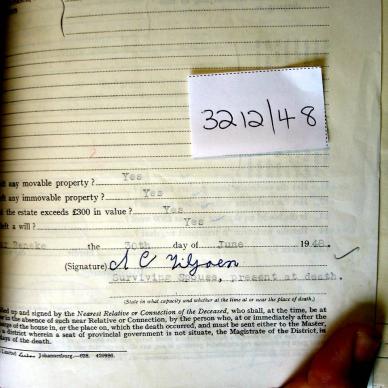 3212/48
ft any movable property ? Yes
ft any immovable property ? Yes
d the estate exceeds £300 in value ? Yes
left a will ? Yes
Beneke the 30th day of June 1948.
(Signature)
Surviving Spouse, present at death.
(State in what capacity and whether at the time at or near the place of death.)
led up and signed by the Nearest Relative or Connection of the Deceased, who shall, at the time, be at
in the absence of such near Relative or Connection, by the person who, at or immediately after the
of the house in, or the place on, which the death occurred, and must be sent either to the Master,
a district wherein a seat of provincial government is not situate, the Magistrate of the District, in
days of the death.
Limited Johannesburg.